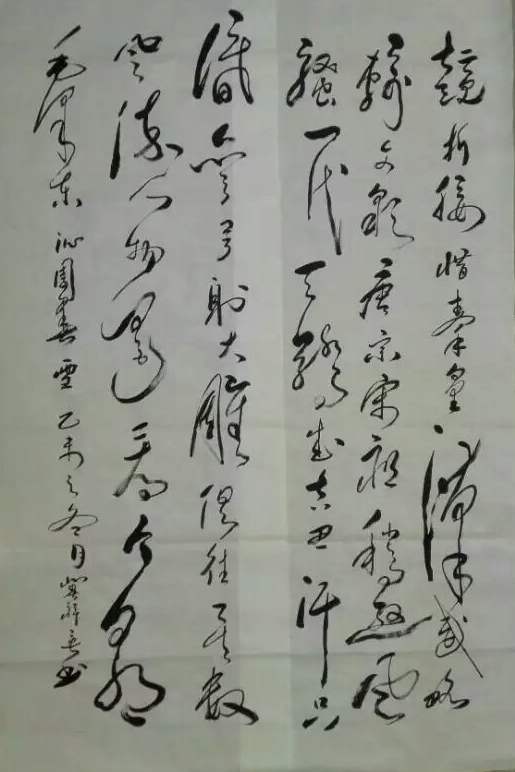 競折腰惜秦皇漢武略
輸文采唐宗宋祖稍遜風
騷一代天驕成吉思汗只
識彎弓射大雕俱往矣數
風流人物還看今朝
毛澤東沁園春雪乙未之冬月書